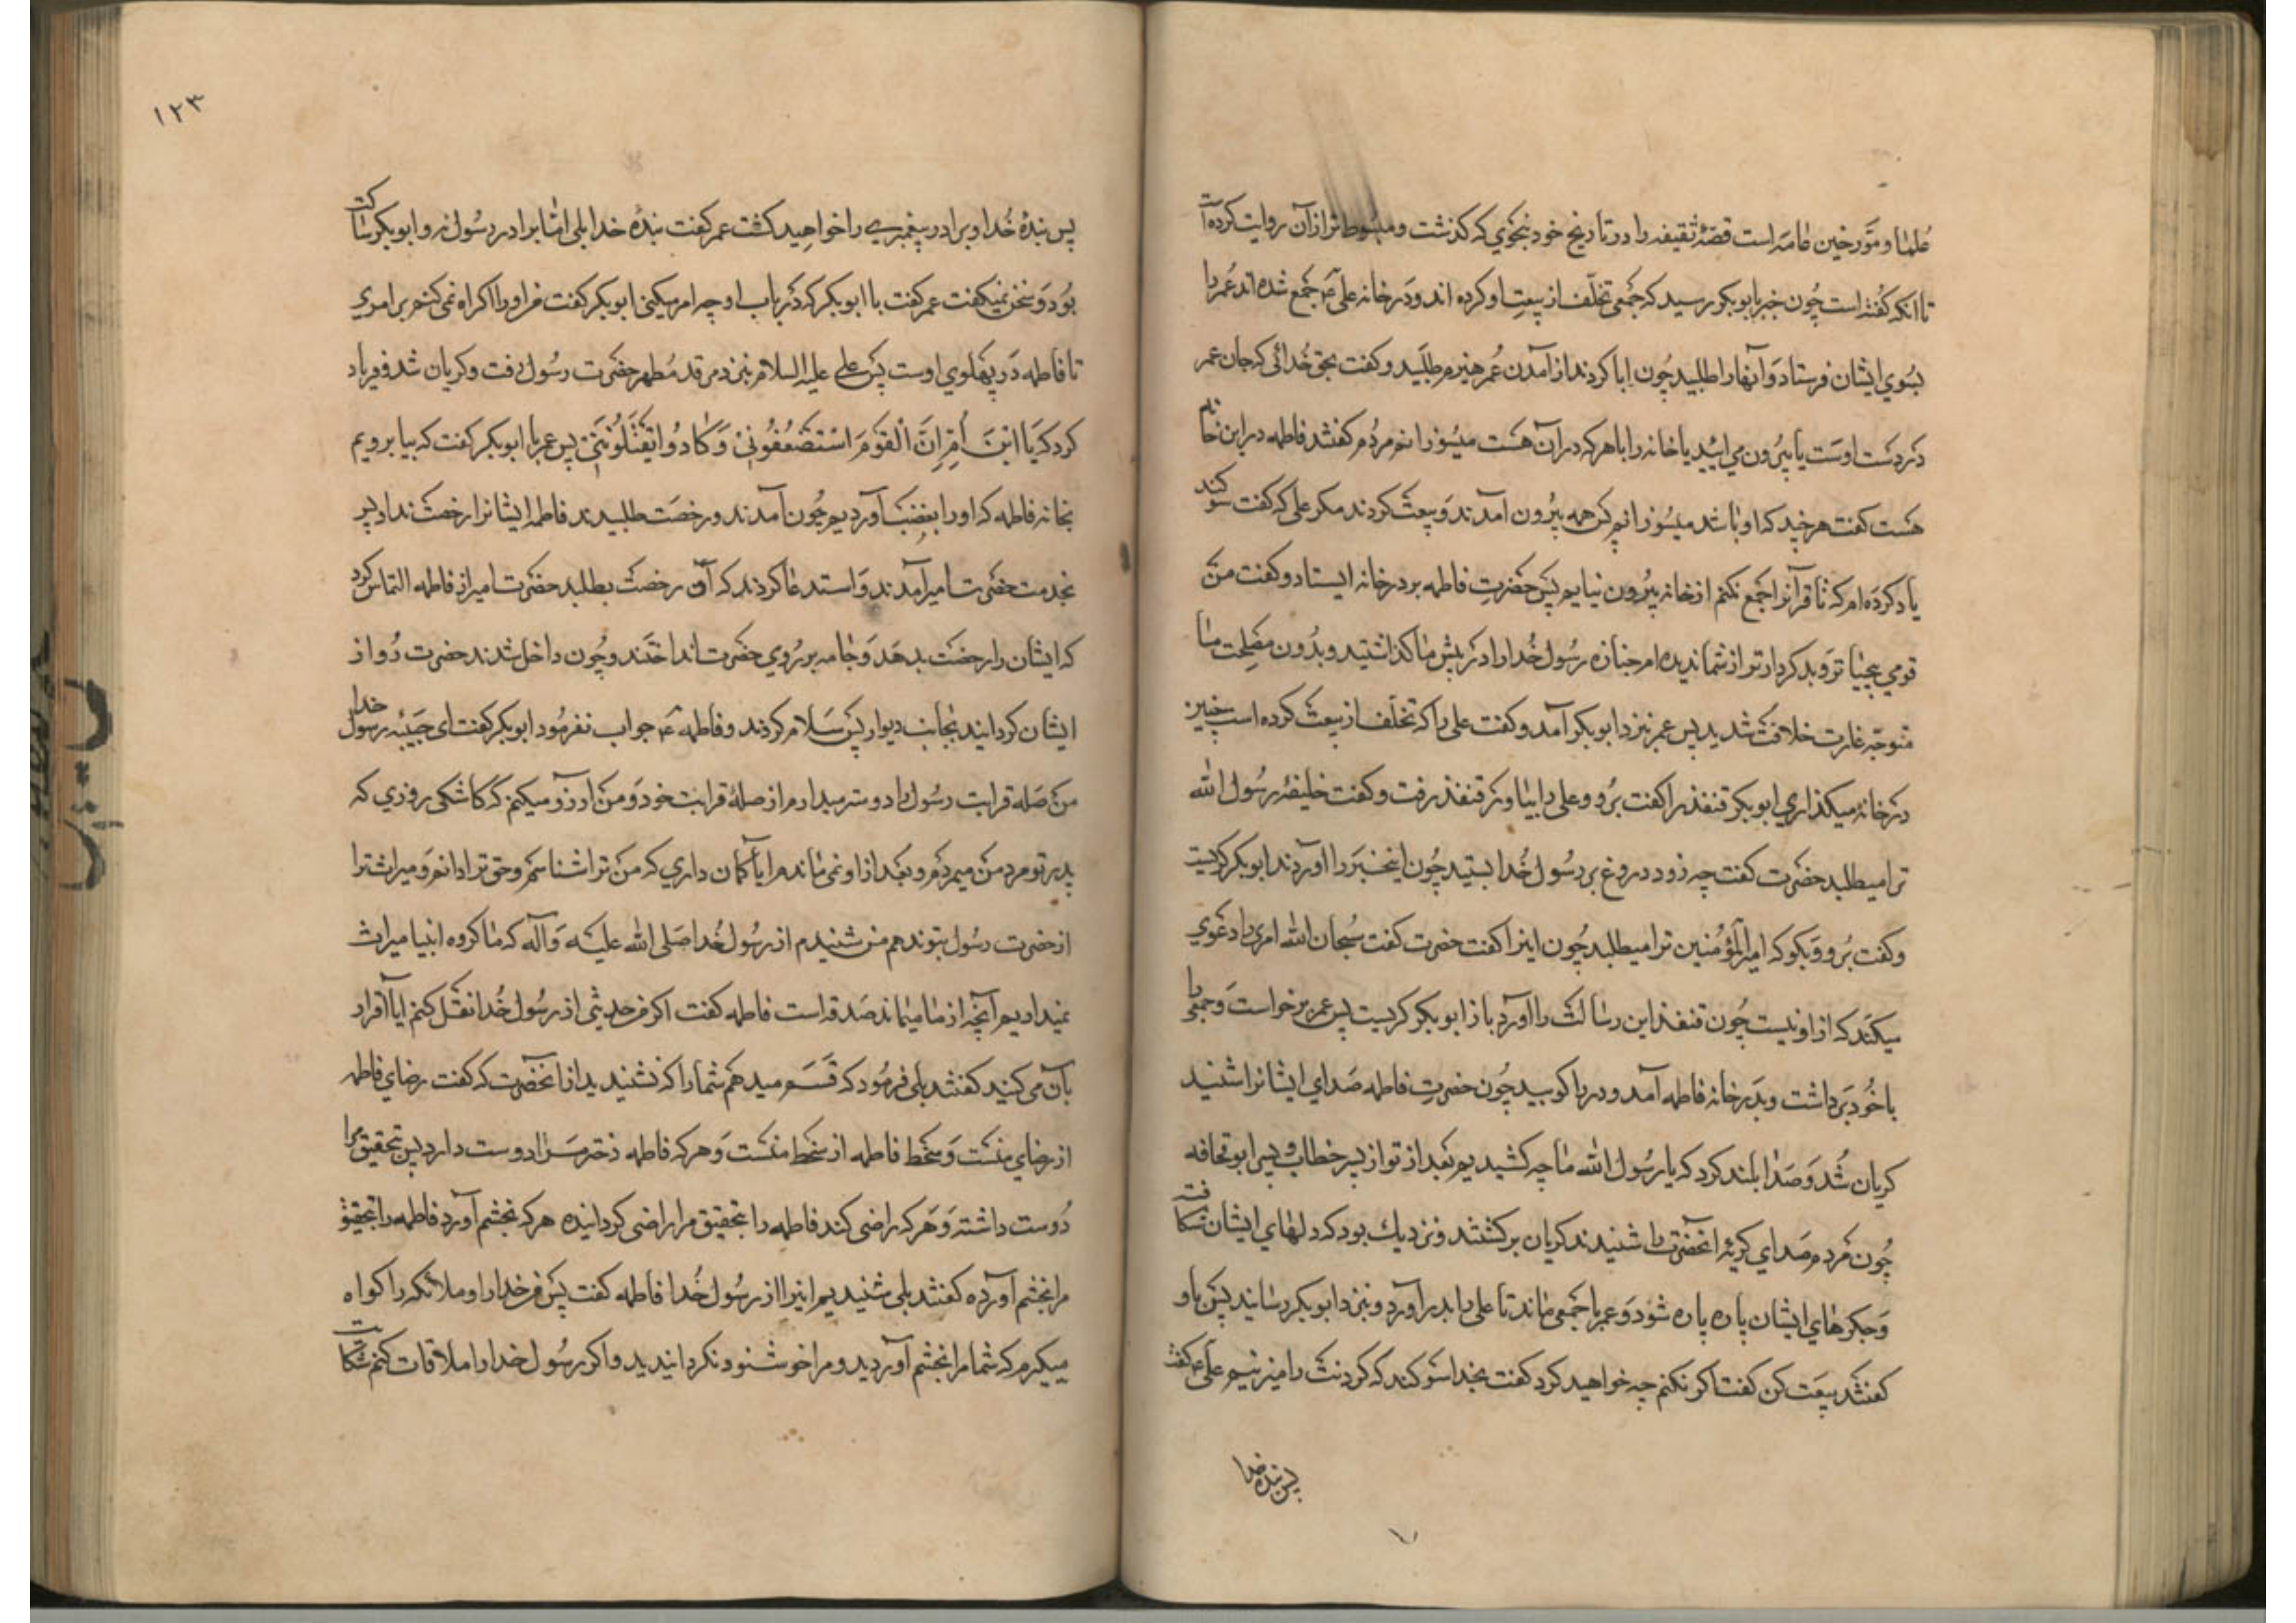 علما و مورخین عامه است قصهٔ ثقیفه را در تاریخ خود بنحوی که کذشت و مبسوط تر از آن روایت کرده است
تا انکه کفته است چون خبر بابوبکر رسید که جمعی تخلّف از بیعت او کرده اند و در خانه علی ع جمع شده اند عمر را
بسوی ایشان فرستاد و آنها را طلبید چون ابا کردند از آمدن عمر هیزم طلبید و کفت بحق خدائی که جان عمر
در دست اوست یا بیرون می ائید یا خانه را با هر که در آن هست میسوزانم مردم کفتند فاطمه در این خانه
هست کفت هر چند که او باشد میسوزانم پس همه بیرون آمدند و بیعت کردند مکر علی که کفت سوکند
یاد کرده ام که تا قرآنرا جمع نکنم از خانه بیرون نیایم پس حضرت فاطمه بر در خانه ایستاد و کفت من
قومی بی حیاتر و بد کردارتر از شما ندیده ام جنازه رسول خدا را در پیش ما کذاشتید و بدون مصلحت ما
متوجه غارت خلافت شدید پس عمر بنزد ابوبکر آمد و کفت علی را که تخلّف از بیعت کرده است چنین
در خانه میکذاری ابوبکر قنفذ را کفت برو و علی را بیاور قنفذ رفت و کفت خلیفهٔ رسول الله
ترا میطلبد حضرت کفت چه زود دروغ بر رسول خدا بستید چون اینخبر را اوردند ابوبکر کریست
و کفت برو و بکو که امیرالمؤمنین ترا میطلبد چون اینرا کفت حضرت کفت سبحان الله امری را دعوی
میکند که از او نیست چون قنفذ این رسالت را آورد باز ابوبکر کریست پس عمر برخواست و جمعی را
با خود برداشت و بدر خانهٔ فاطمه آمد و در را کوبید چون حضرت فاطمه صدای ایشانرا شنید
کریان شد و صدا بلند کرد که یا رسول الله ما چه کشیدیم بعد از تو از پسر خطاب و پسر ابوقحافه
چون مردم صدای کریهٔ انحضرت را شنیدند کریان برکشتند و نزدیک بود که دلهای ایشان شکافته
و جکرهای ایشان پاره پاره شود و عمر با جمعی ماند تا علی را بدر آورد و بنزد ابوبکر رسانید پس باو
کفتند بیعت کن کفت اکر نکنم چه خواهید کرد کفت بخدا سوکند که کردنت را میزنیم علی ع کفت
پس بنده خدا
۱۲۳
پس بندهٔ خدا و برادر پیغمبری را خواهید کشت عمر کفت بندهٔ خدا بلی امّا برادر رسول نه و ابوبکر ساکت
بود و سخن نمیکفت عمر کفت با ابوبکر که در باب او چه امر میکنی ابوبکر کفت من او را اکراه نمی کنم بر امری
تا فاطمه در پهلوی اوست پس علی علیه السلام بنزد مرقد مطهر حضرت رسول رفت و کریان شد و فریاد
کرد که یَا ابْنَ أُمِّ اِنَّ الْقَوْمَ اسْتَضْعَفُونِیْ وَکَادُوا یَقْتُلُونَنِیْ پس عمر با ابوبکر کفت که بیا برویم
بخانه فاطمه که او را بغضب آوردیم چون آمدند و رخصت طلبیدند فاطمه ایشانرا رخصت نداد پس
بخدمت حضرت امیر آمدند و استدعا کردند که آن رخصت بطلبد حضرت امیر از فاطمه التماس کرد
که ایشان را رخصت بدهد و جامه بر روی حضرت انداختند و چون داخل شدند حضرت رو از
ایشان کردانید بجانب دیوار پس سلام کردند و فاطمه ع جواب نفرمود ابوبکر کفت ای حبیبه رسول خدا
من صله قرابت رسول را دوستر میدارم از صلهٔ قرابت خود و من ارزو میکنم که کاشکی روزی که
پدر تو مرد من میمردم و بعد از او نمی ماندم ایا کمان داری که من ترا شناسم و حق ترا دانم و میراث ترا
از حضرت رسول بتو ندهم من شنیدم از رسول خدا صلی الله علیه وآله که ما کروه انبیا میراث
نمیداریم آنچه از ما میماند صدقه است فاطمه کفت اکر من حدیثی از رسول خدا نقل کنم ایا اقرار
بآن می کنید کفتند بلی فرمود که قسم میدهم شما را که نشنیدید از انحضرت که کفت رضای فاطمه
از رضای منست و سخط فاطمه از سخط منست و هر که فاطمه دختر مرا دوست دارد پس بتحقیق مرا
دوست داشته و هر که راضی کند فاطمه را بتحقیق مرا راضی کردانیده هر که بخشم آورد فاطمه را بتحقیق
مرا بخشم آورده کفتند بلی شنیدیم اینرا از رسول خدا فاطمه کفت پس من خدا را و ملائکه را کواه
میکیرم که شما مرا بخشم آوردید و مرا خوشنود نکردانیدید و اکر رسول خدا را ملاقات کنم شکایت